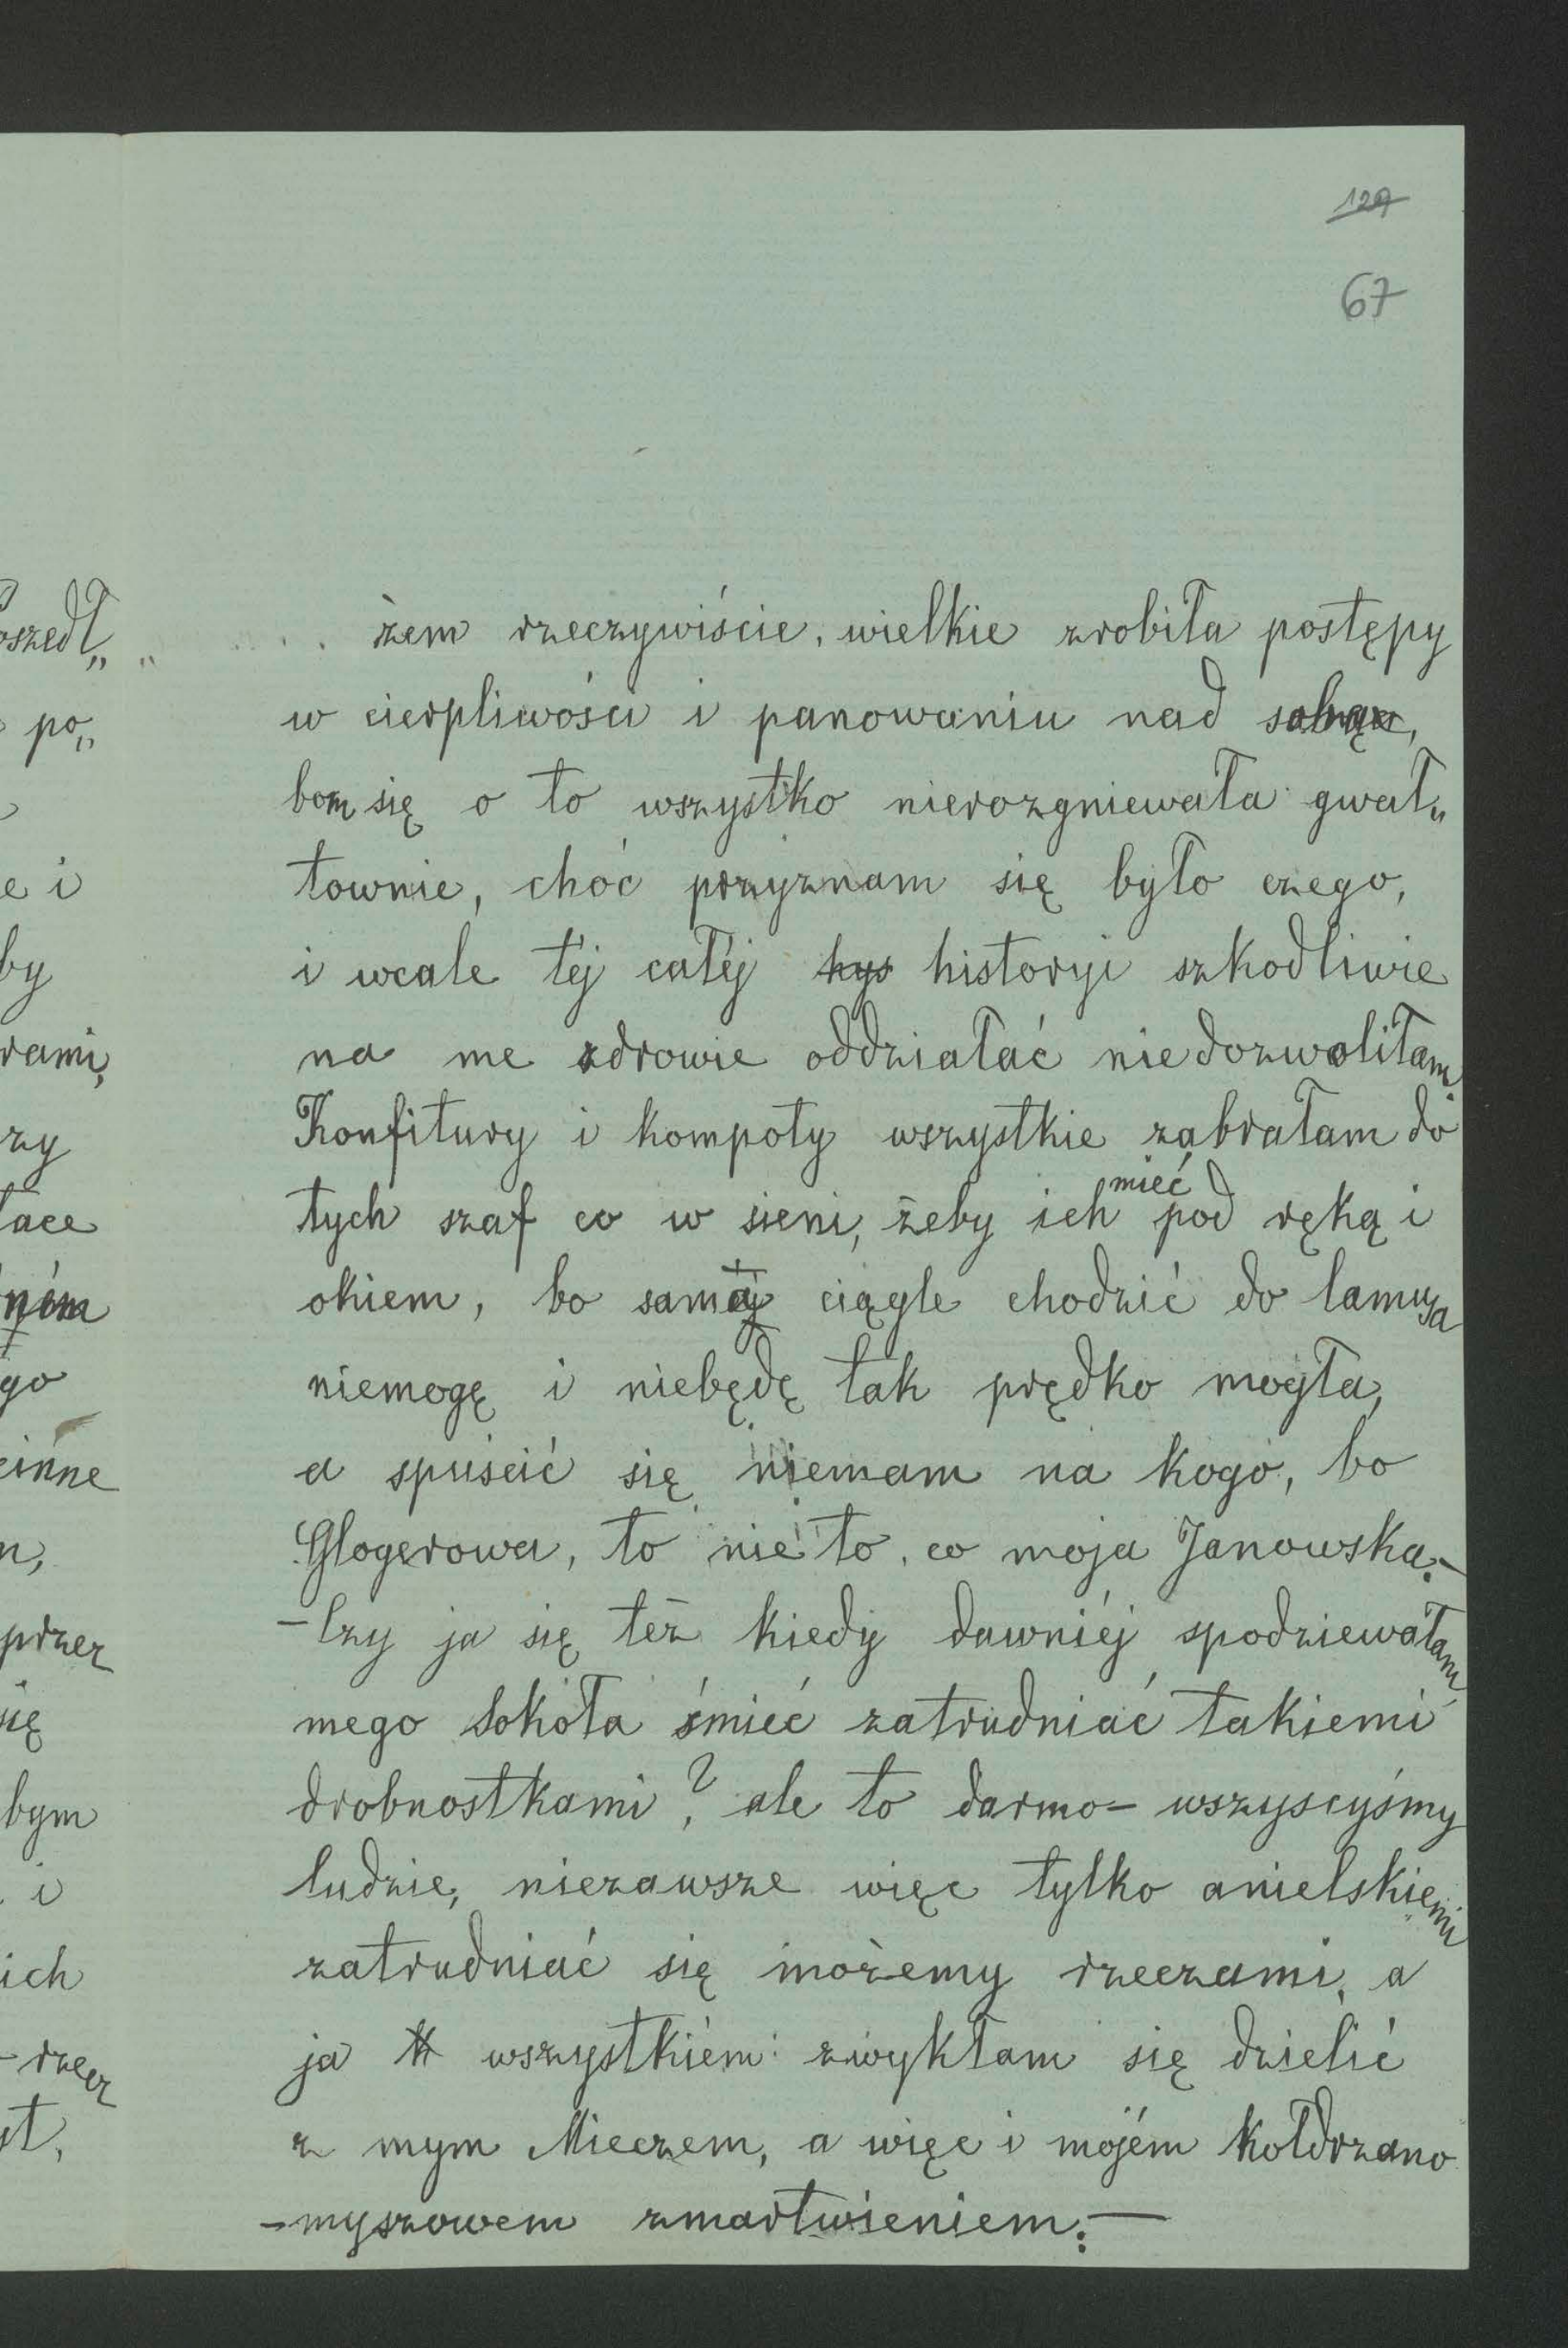 129
67
żem rzeczywiście, wielkie zrobiła postępy
w cierpliwości i panowaniu nad sobą,
bom się o to wszystko nierozgniewała gwał„
townie, choć przyznam się było czego,
i wcale téj całéj hys historyi szkodliwie
na me zdrowie oddziałać niedozwoliłam
Konfitury i kompoty wszystkie zabrałam do
tych szaf co w sieni, żeby ich mieć pod ręką i
okiem, bo samą ciągle chodzić do lamusa
niemogę i niebędę tak prędko mogła,
a spuścić się niemam na kogo, bo
Glogerowa, to nie to, co moja Janowska.-
-Czy ja się też kiedy dawniéj spodziewałam
mego Sokoła śmieć zatrudniać takiemi
drobnostkami? ale to darmo- wszyscyśmy
ludzie, niezawsze więc tylko anielskiemi
zatrudniać się możemy rzeczami, a
ja wszystkiém zwykłam się dzielić
z mym Mieczem, a więc i mojém kołdrzano
-myszowem zmartwieniem.-
oszedł„
po„
e i
by
rami,
zy
łace
go
cinne
n,
przez
się
bym
i
ich
- rzecz
st,